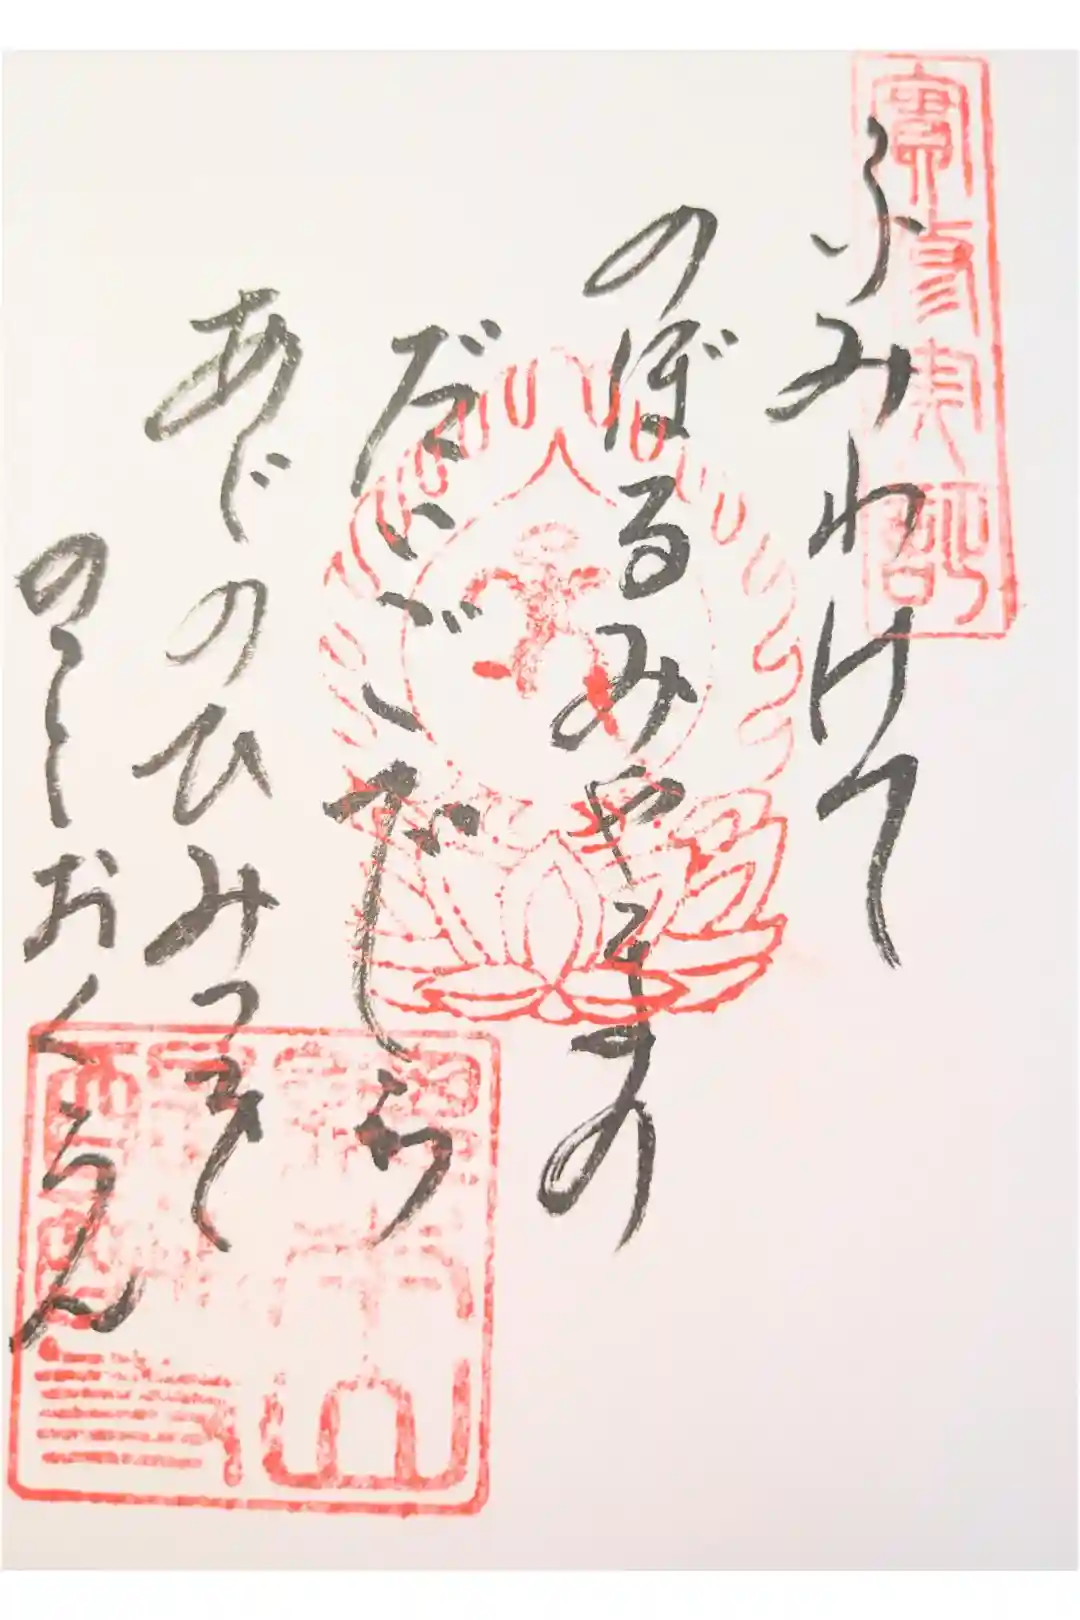 ふみわけて
のぼるみやまの
だいごでら
あじのひみつを
のこしおくらん